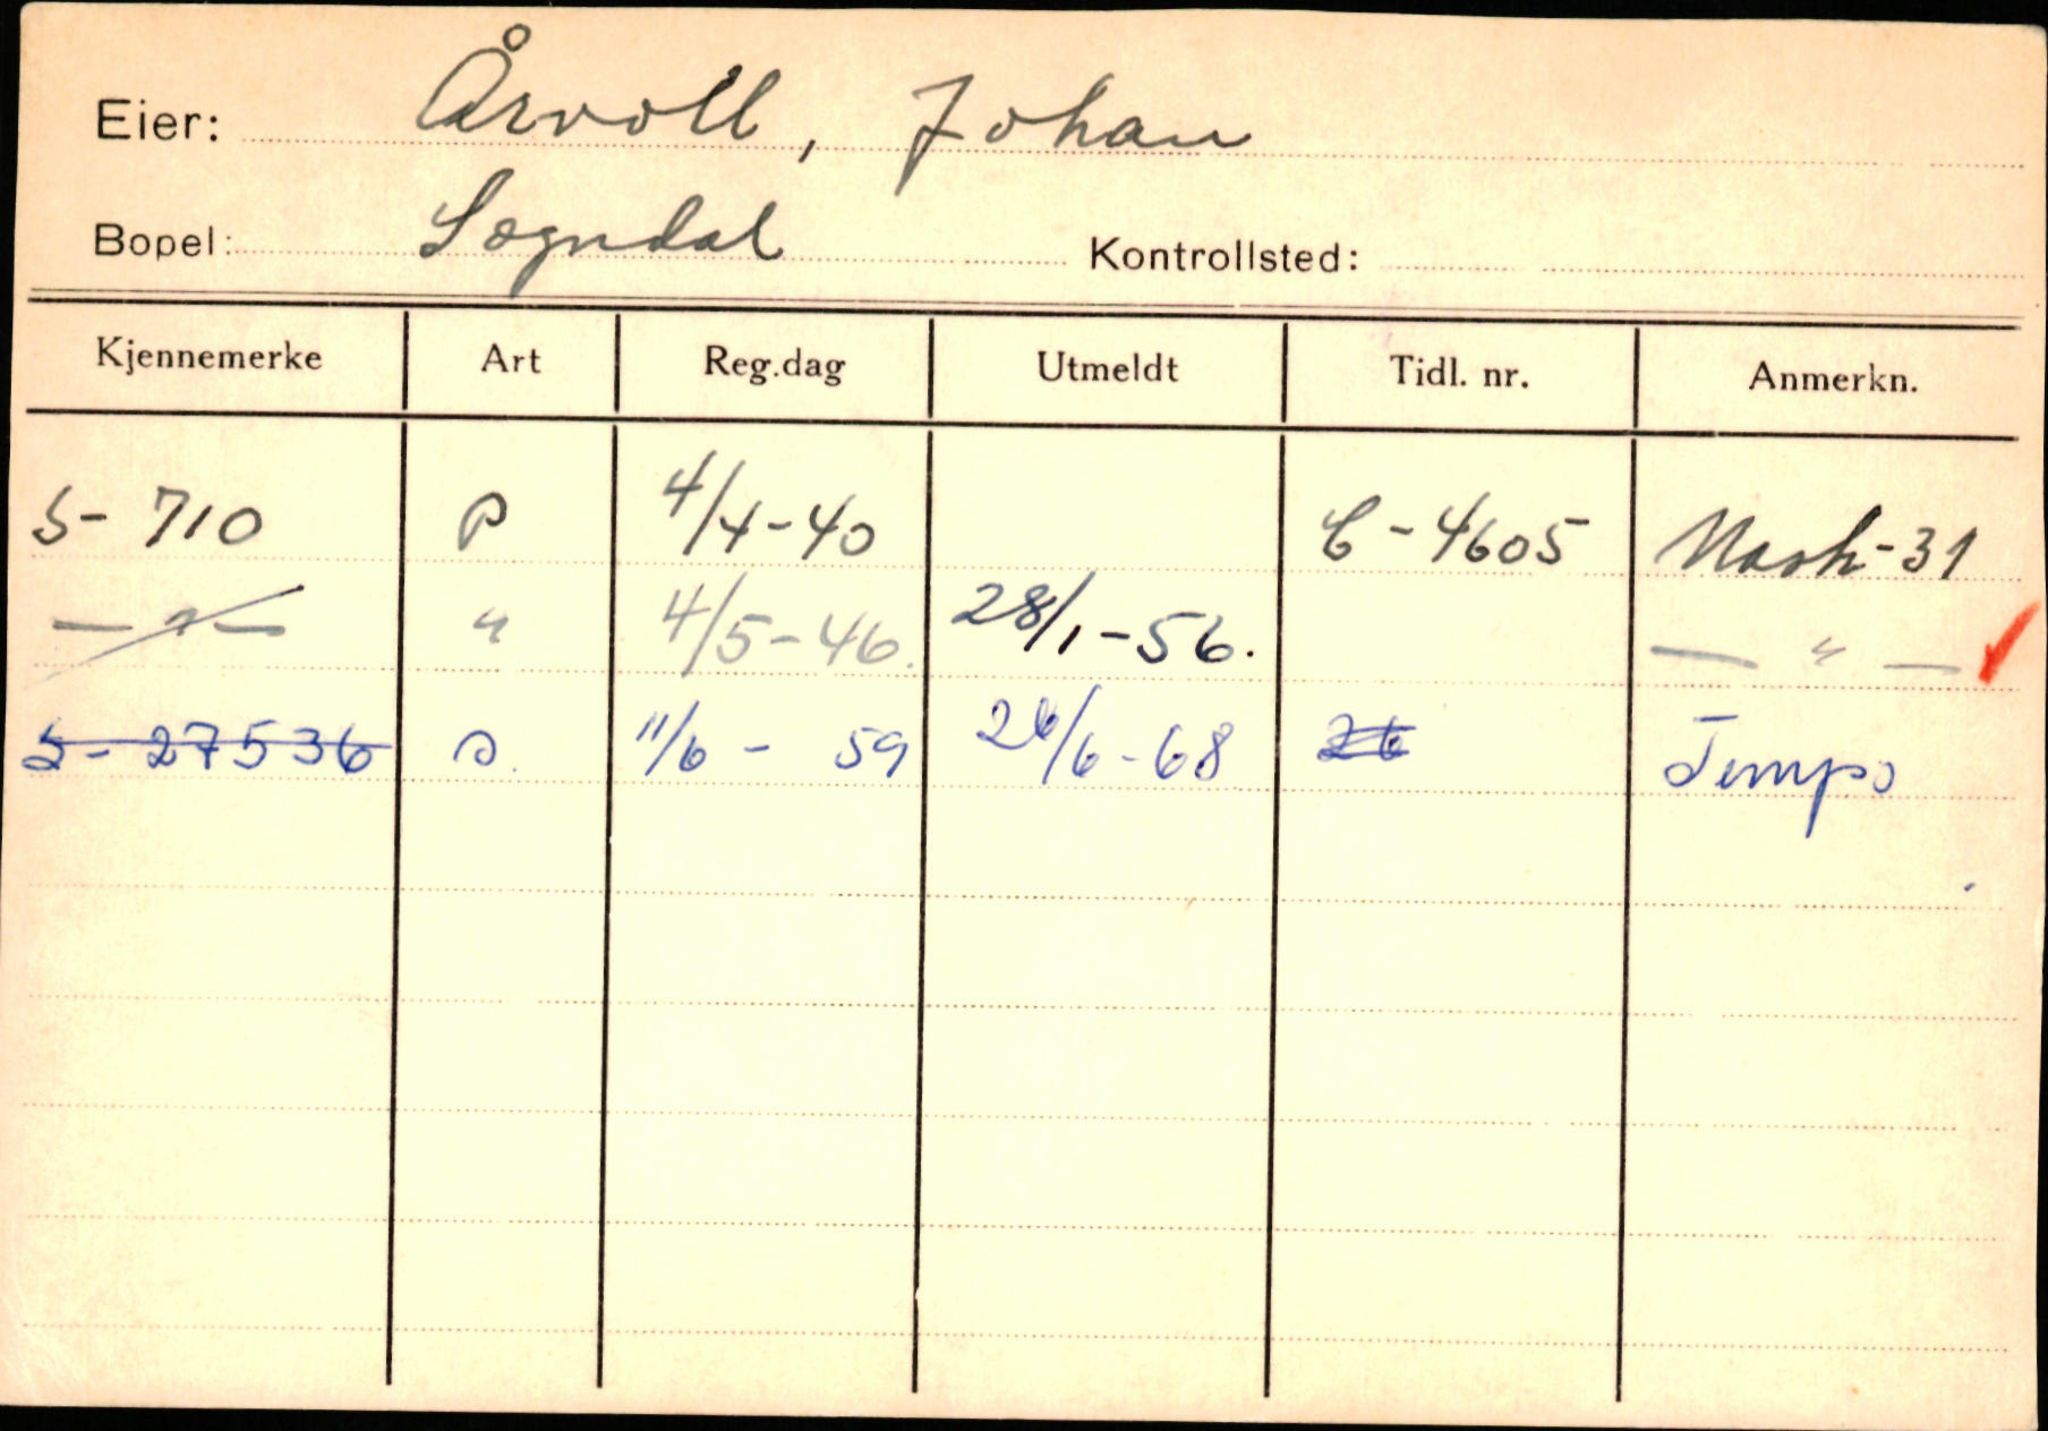 Eier: Årvoll, Johan
Bopel: Sogndal Kontrollsted:
Kjennemerke Art Reg.dag Utmeldt Tidl. nr. Anmerkn.
S- 710 P 4/4-40 C-4605 Nash-31
— " — " 4/5-46. 28/1-56. — " —
S- 27536 P. 11/6 - 59 26/6-68 26 Tempo